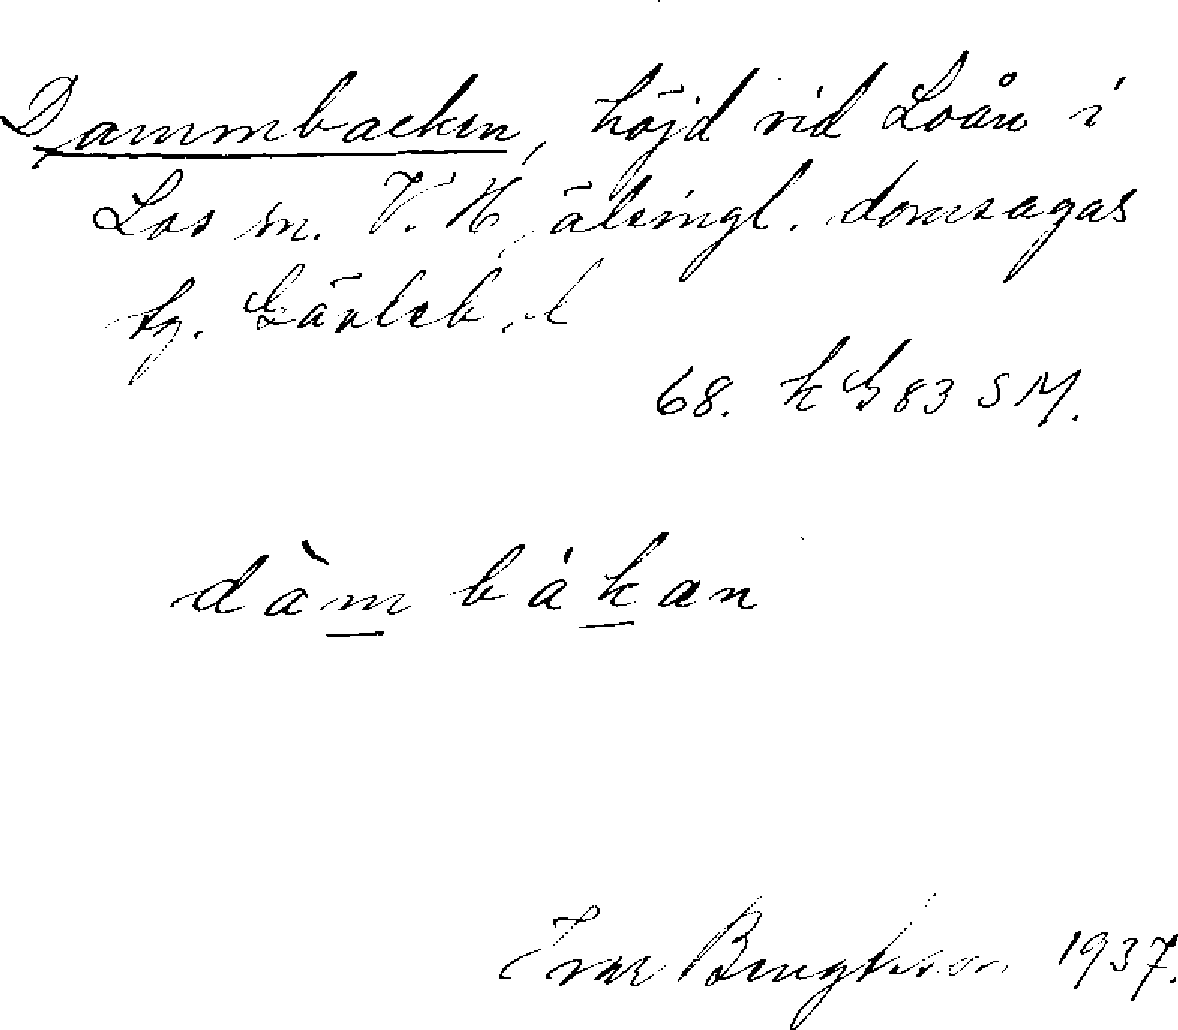 Dammbacken, höjd vid Loån i
Los sn. V. Hälsingl. domsagas
tg. Gävleb. l
68. k G 83 SM.
dàm bákan
Ivar Bengtsson 1937.